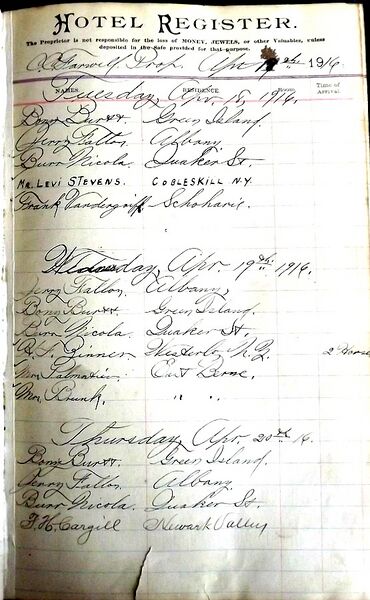 HOTEL REGISTER.
The Proprietor is not responsible for the loss of MONEY, JEWELS, or other Valuables, unless
deposited in the Safe provided for that purpose.
Prop. Apr 1916
NAMES. RESIDENCE. Room. Time of Arrival.
Tuesday, Apr. 18, 1916.
Bony Burtt Green Island.
Jerry Fallon Albany.
Burr Nicola Quaker St.
MR. LEVI STEVENS. COBLESKILL N.Y.
Frank Vandergriff Schoharie.
Wednesday, Apr. 19th 1916.
Jerry Fallon, Albany,
Bony Burtt Green Island.
Burr Nicola Quaker St.
Zinner Westerlo, N.Y. 2 Horse
Mrs. East Berne.
Mrs. " "
Thursday, Apr. 20th 16.
Bony Burtt. Green Island.
Jerry Fallon Albany
Burr Nicola. Quaker St.
F. H. Cargill Newark Valley